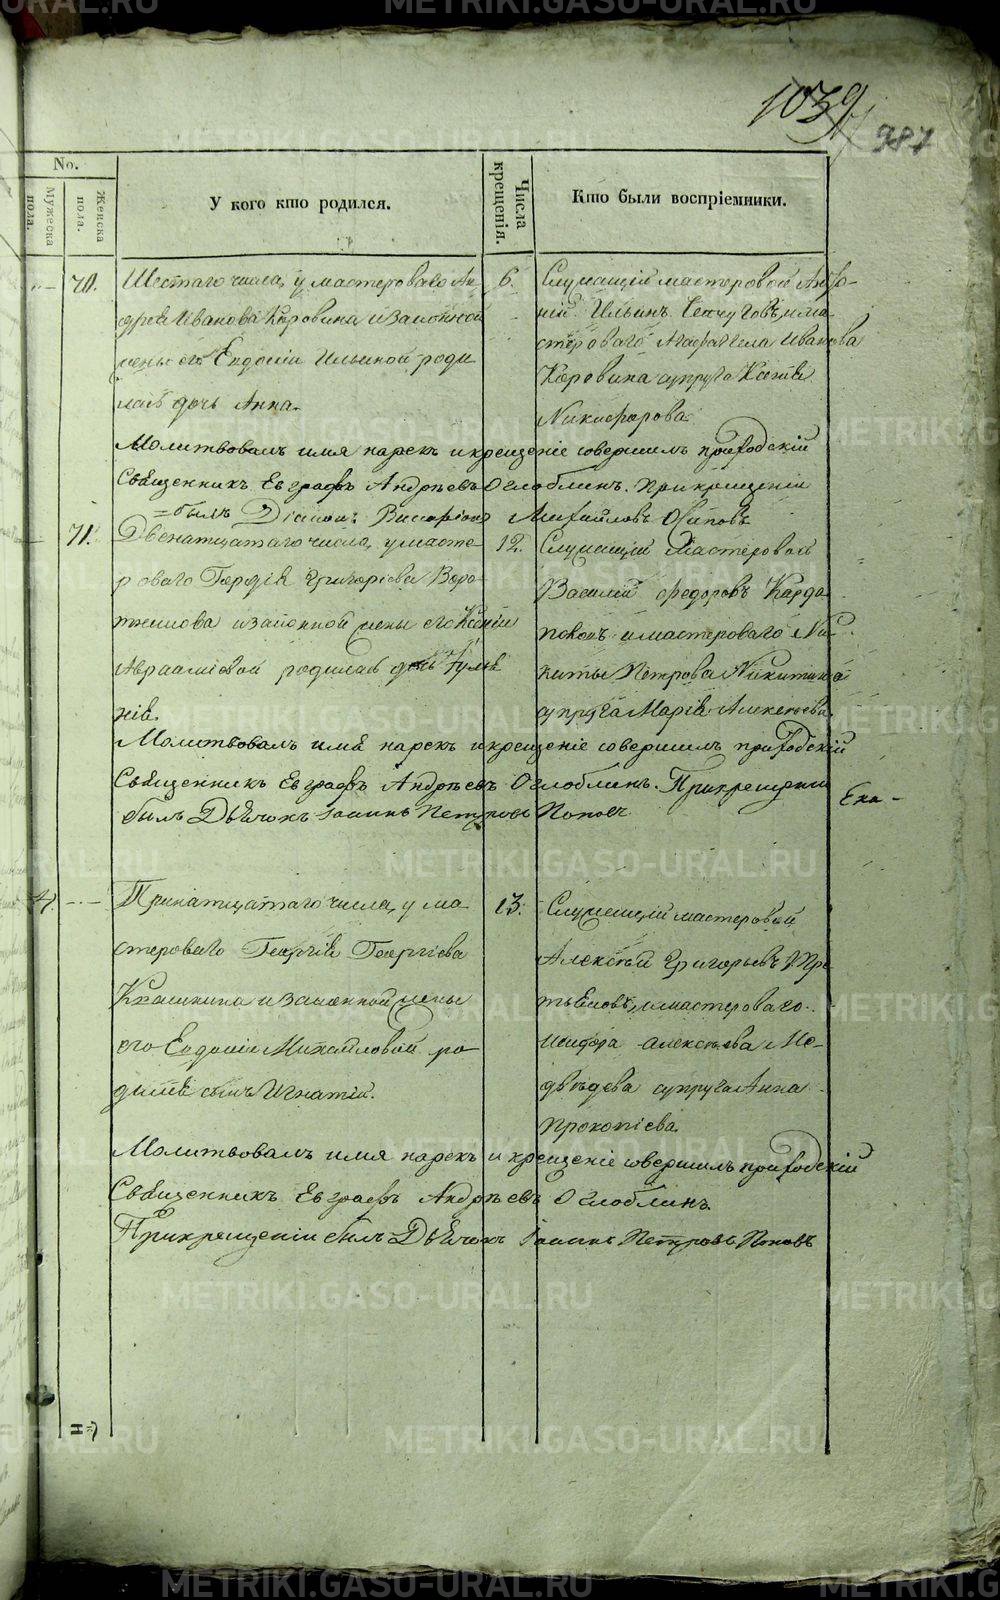 1039
987
No.
Мужеска пола.
Женска пола.
У кого кто родился.
Числа крещенія.
Кто были воспріемники.
70.
Шестаго числа, у мастероваго Ан-
дрея Иванова Коровина и законной
жены его Евдокіи Ильиной роди
лась дочь Анна.
6.
Служащій мастеровой Анто-
ній Ильинъ и ма-
стероваго Агафангела Иванова
Коровина супруга
Никифорова.
Молитвовалъ имя нарекъ и крещеніе совершилъ приходскій
Священникъ Евграфъ Андреевъ Оглоблинъ. При крещеніи
былъ Діаконъ Виссаріонъ Михайловъ Осиповъ
71.
Двенатцатаго числа, у масте-
роваго Гордія Григоріева Воро-
тникова и законной жены его Ксеніи
Авраамовой родилась дочь Іуліа
нія.
12.
Служащій Мастеровой
Василій Федоровъ Кардо
и мастероваго Ни-
киты Петрова Никитина
супруга Марія Алексеева.
Молитвовалъ имя нарекъ и крещеніе совершилъ приходскій
Священникъ Евграфъ Андреевъ Оглоблинъ. При крещеніи
былъ Дьячокъ Іоаннъ Петровъ Поповъ
Ека-
Тринатцатаго числа, у ма-
стероваго Георгія Георгіева
Квашнина и законной жены
его Евдокіи Михайловой ро-
дился сынъ Игнатій.
13.
Служащій мастеровой
Алексей Григорьевъ Тре-
тьяковъ, и мастероваго
Исидора Алексеева Ме-
дведева супруга Анна
Прокопіева.
Молитвовалъ имя нарекъ и крещеніе совершилъ приходскій
Священникъ Евграфъ Андреевъ Оглоблинъ.
При крещеніи былъ Дьячокъ Іоаннъ Петровъ Поповъ
METRIKI.GASO-URAL.RU